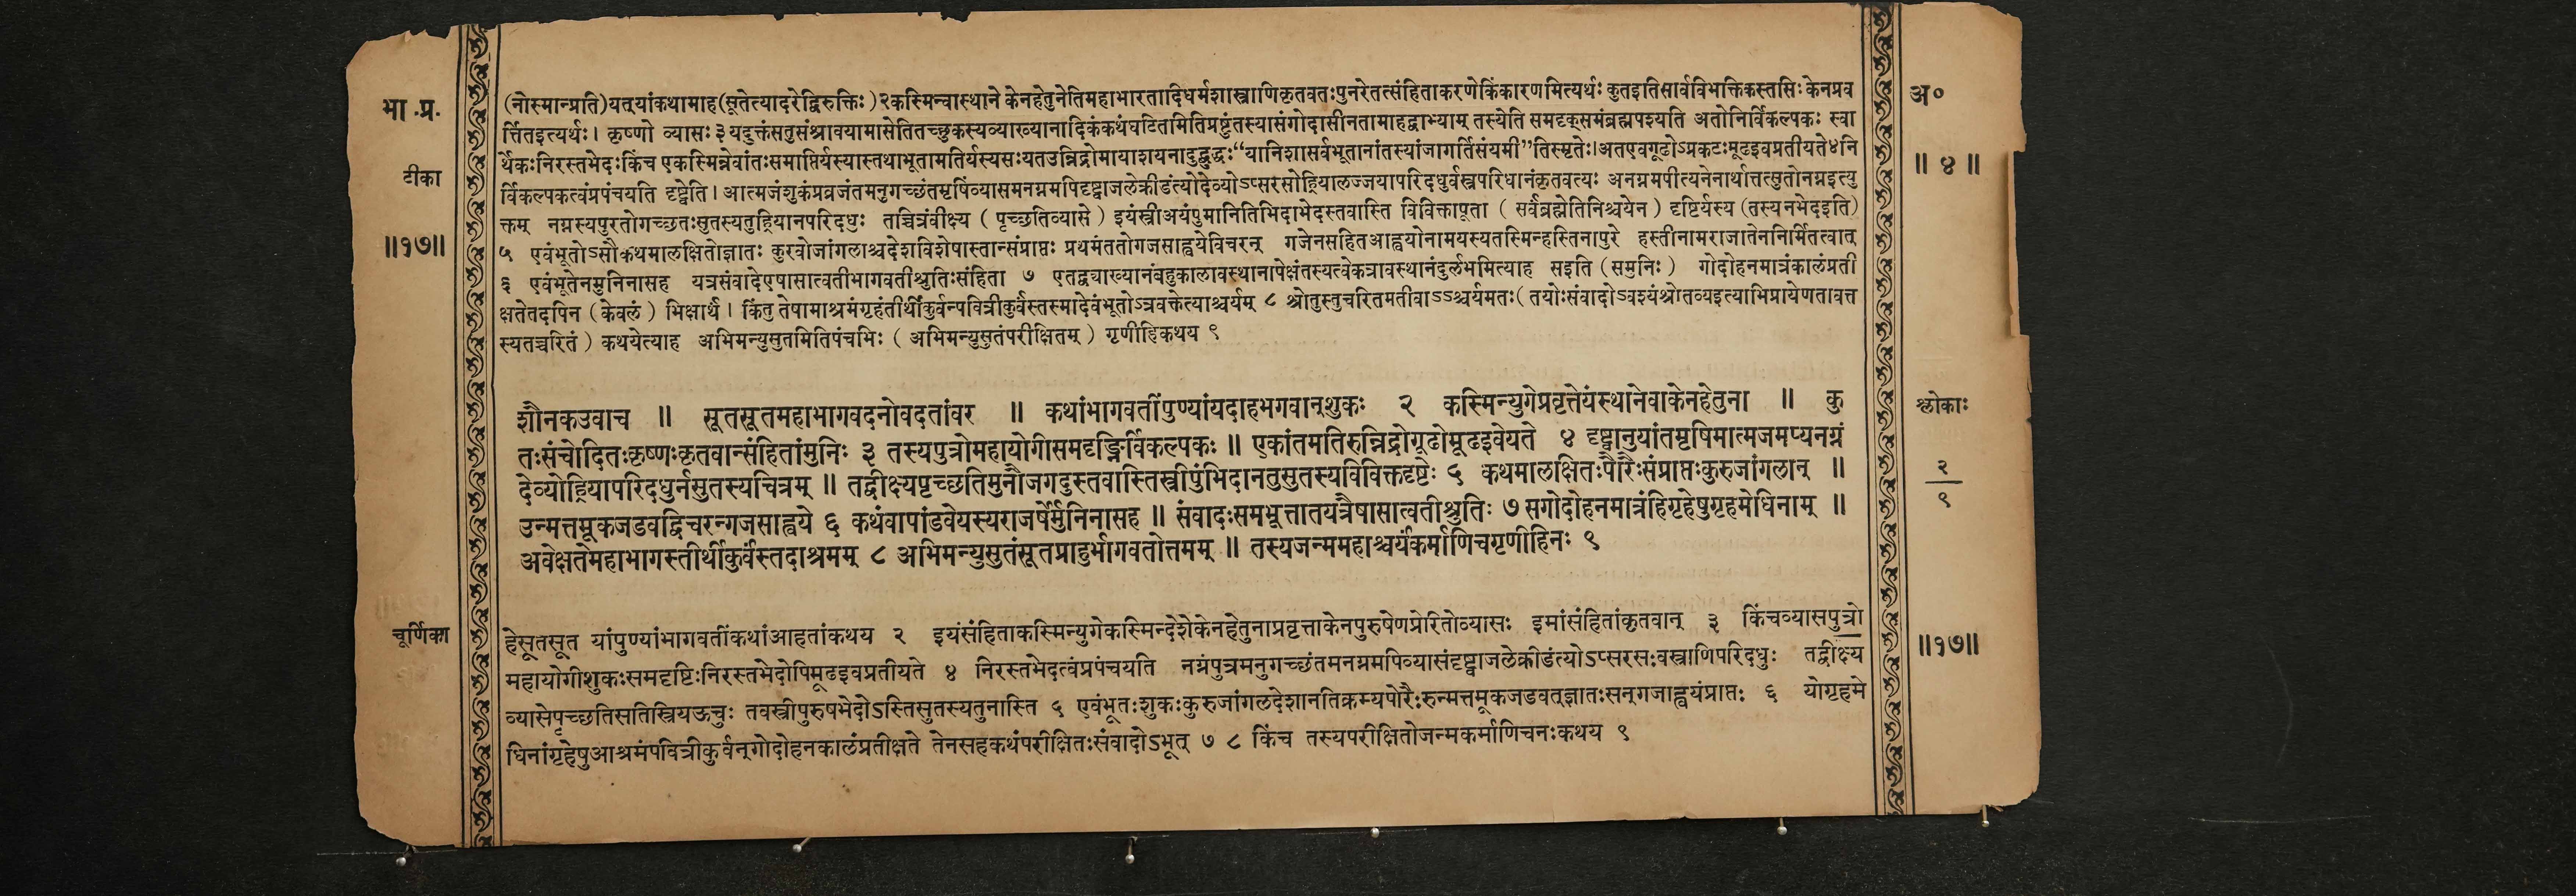 भा .प्र.
टीका
॥१७॥
(नोस्मान्प्रति)यत्यांकथामाह(सूतेत्यादरेद्विरुक्तिः)२कस्मिन्वास्थाने केनहेतुनेतिमहाभारतादिधर्मशास्त्राणिकृतवतःपुनरेतत्संहिताकरणेकिंकारणमित्यर्थः कुतइतिसार्वविभक्तिकस्तसिः केनप्रव
र्त्तितइत्यर्थः। कृष्णो व्यासः ३ यदुक्तंसतुसंश्रावयामासेतितच्छुकस्यव्याख्यानादिकंकथंघटितमितिप्रष्टुंतस्यासंगोदासीनतामाहद्वाभ्याम् तस्येति समदृक्समंब्रह्मपश्यति अतोनिर्विकल्पकः स्वा
र्थेकःनिरस्तभेदःकिंच एकस्मिन्नेवांतःसमाप्तिर्यस्यास्तथाभूतामतिर्यस्यसःयतउन्निद्रोमायाशयनादुद्बुद्धः“यानिशासर्वभूतानांतस्यांजागर्तिसंयमी”तिस्मृतेः।अतएवगूढोऽप्रकटःमूढइवप्रतीयते४नि
र्विकल्पकत्वंप्रपंचयति दृष्ट्वेति। आत्मजंशुकंप्रव्रजंतमनुगच्छंतमृषिंव्यासमनग्नमपिदृष्ट्वाजलेक्रीडंत्योदेव्योऽप्सरसोह्रियालज्जयापरिदधुर्वस्त्रपरिधानंकृतवत्यः अनग्नमपीत्यनेनार्थात्तत्सुतोनग्नइत्यु
क्तम् नग्नस्यपुरतोगच्छतःसुतस्यतुह्रियानपरिदधुः तच्चित्रंवीक्ष्य (पृच्छतिव्यासे) इयंस्त्रीअयंपुमानितिभिदाभेदस्तवास्ति विविक्तापूता (सर्वंब्रह्मेतिनिश्चयेन) दृष्टिर्यस्य (तस्यनभेदइति)
५ एवंभूतोऽसौकथमालक्षितोज्ञातः कुरवोजांगलाश्चदेशविशेषास्तान्संप्राप्तः प्रथमंततोगजसाह्वयेविचरन् गजेनसहितआह्वयोनामयस्यतस्मिन्हस्तिनापुरे हस्तीनामराजातेननिर्मितत्वात्
६ एवंभूतेनमुनिनासह यत्रसंवादेएषासात्वतीभागवतीश्रुतिःसंहिता ७ एतद्व्याख्यानंबहुकालावस्थानापेक्षंतस्यत्वेकत्रावस्थानंदुर्लभमित्याह सइति (समुनिः) गोदोहनमात्रंकालंप्रती
क्षतेतदपिन (केवलं) भिक्षार्थं। किंतु तेषामाश्रमंगृहंतीर्थीकुर्वन्पवित्रीकुर्वंस्तस्मादेवंभूतोऽत्रवक्तेत्याश्चर्यम् ८ श्रोतुस्तुचरितमतीवाऽऽश्चर्यमतः(तयोःसंवादोऽवश्यंश्रोतव्यइत्याभिप्रायेणतावत्त
स्यतच्चरितं) कथयेत्याह अभिमन्युसुतमितिपंचभिः (अभिमन्युसुतंपरीक्षितम्) गृणीहिकथय ९
शौनकउवाच ॥ सूतसूतमहाभागवदनोवदतांवर ॥ कथांभागवतींपुण्यांयदाहभगवान्शुकः २ कस्मिन्युगेप्रवृत्तेयंस्थानेवाकेनहेतुना ॥ कु
तःसंचोदितःकृष्णःकृतवान्संहितांमुनिः ३ तस्यपुत्रोमहायोगीसमदृङ्निर्विकल्पकः ॥ एकांतमतिरुन्निद्रोगूढोमूढइवेयते ४ दृष्ट्वानुयांतमृषिमात्मजमप्यनग्नं
देव्योह्रियापरिदधुर्नसुतस्यचित्रम् ॥ तद्वीक्ष्यपृच्छतिमुनौजगदुस्तवास्तिस्त्रीपुंभिदानतुसुतस्यविविक्तदृष्टेः ५ कथमालक्षितःपौरैःसंप्राप्तःकुरुजांगलान् ॥
उन्मत्तमूकजडवद्विचरन्गजसाह्वये ६ कथंवापांडवेयस्यराजर्षेर्मुनिनासह ॥ संवादःसमभूत्तातयत्रैषासात्वतीश्रुतिः ७ सगोदोहनमात्रंहिगृहेषुगृहमेधिनाम् ॥
अवेक्षतेमहाभागस्तीर्थीकुर्वंस्तदाश्रमम् ८ अभिमन्युसुतंसूतप्राहुर्भागवतोत्तमम् ॥ तस्यजन्ममहाश्चर्यंकर्माणिचगृणीहिनः ९
चूर्णिका
हेसूतसूत यांपुण्यांभागवतींकथांआहतांकथय २ इयंसंहिताकस्मिन्युगेकस्मिन्देशेकेनहेतुनाप्रवृत्ताकेनपुरुषेणप्रेरितोव्यासः इमांसंहितांकृतवान् ३ किंचव्यासपुत्रो
महायोगीशुकःसमदृष्टिःनिरस्तभेदोपिमूढइवप्रतीयते ४ निरस्तभेदत्वंप्रपंचयति नग्नंपुत्रमनुगच्छंतमनग्नमपिव्यासंदृष्ट्वाजलेक्रीडंत्योऽप्सरसःवस्त्राणिपरिदधुः तद्वीक्ष्य
व्यासेपृच्छतिसतिस्त्रियऊचुः तवस्त्रीपुरुषभेदोऽस्तिसुतस्यतुनास्ति ५ एवंभूतःशुकःकुरुजांगलदेशानतिक्रम्यपोरैःरुन्मत्तमूकजडवत्ज्ञातःसन्गजाह्वयंप्राप्तः ६ योगृहमे
धिनांगृहेषुआश्रमंपवित्रीकुर्वन्गोदोहनकालंप्रतीक्षते तेनसहकथंपरीक्षितःसंवादोऽभूत् ७ ८ किंच तस्यपरीक्षितोजन्मकर्माणिचनःकथय ९
अ०
॥ ४ ॥
श्लोकाः
२
९
॥१७॥